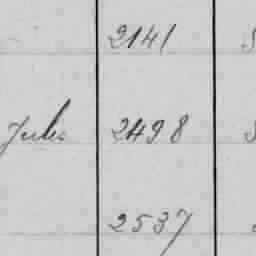 2141
Jules 2498
2537